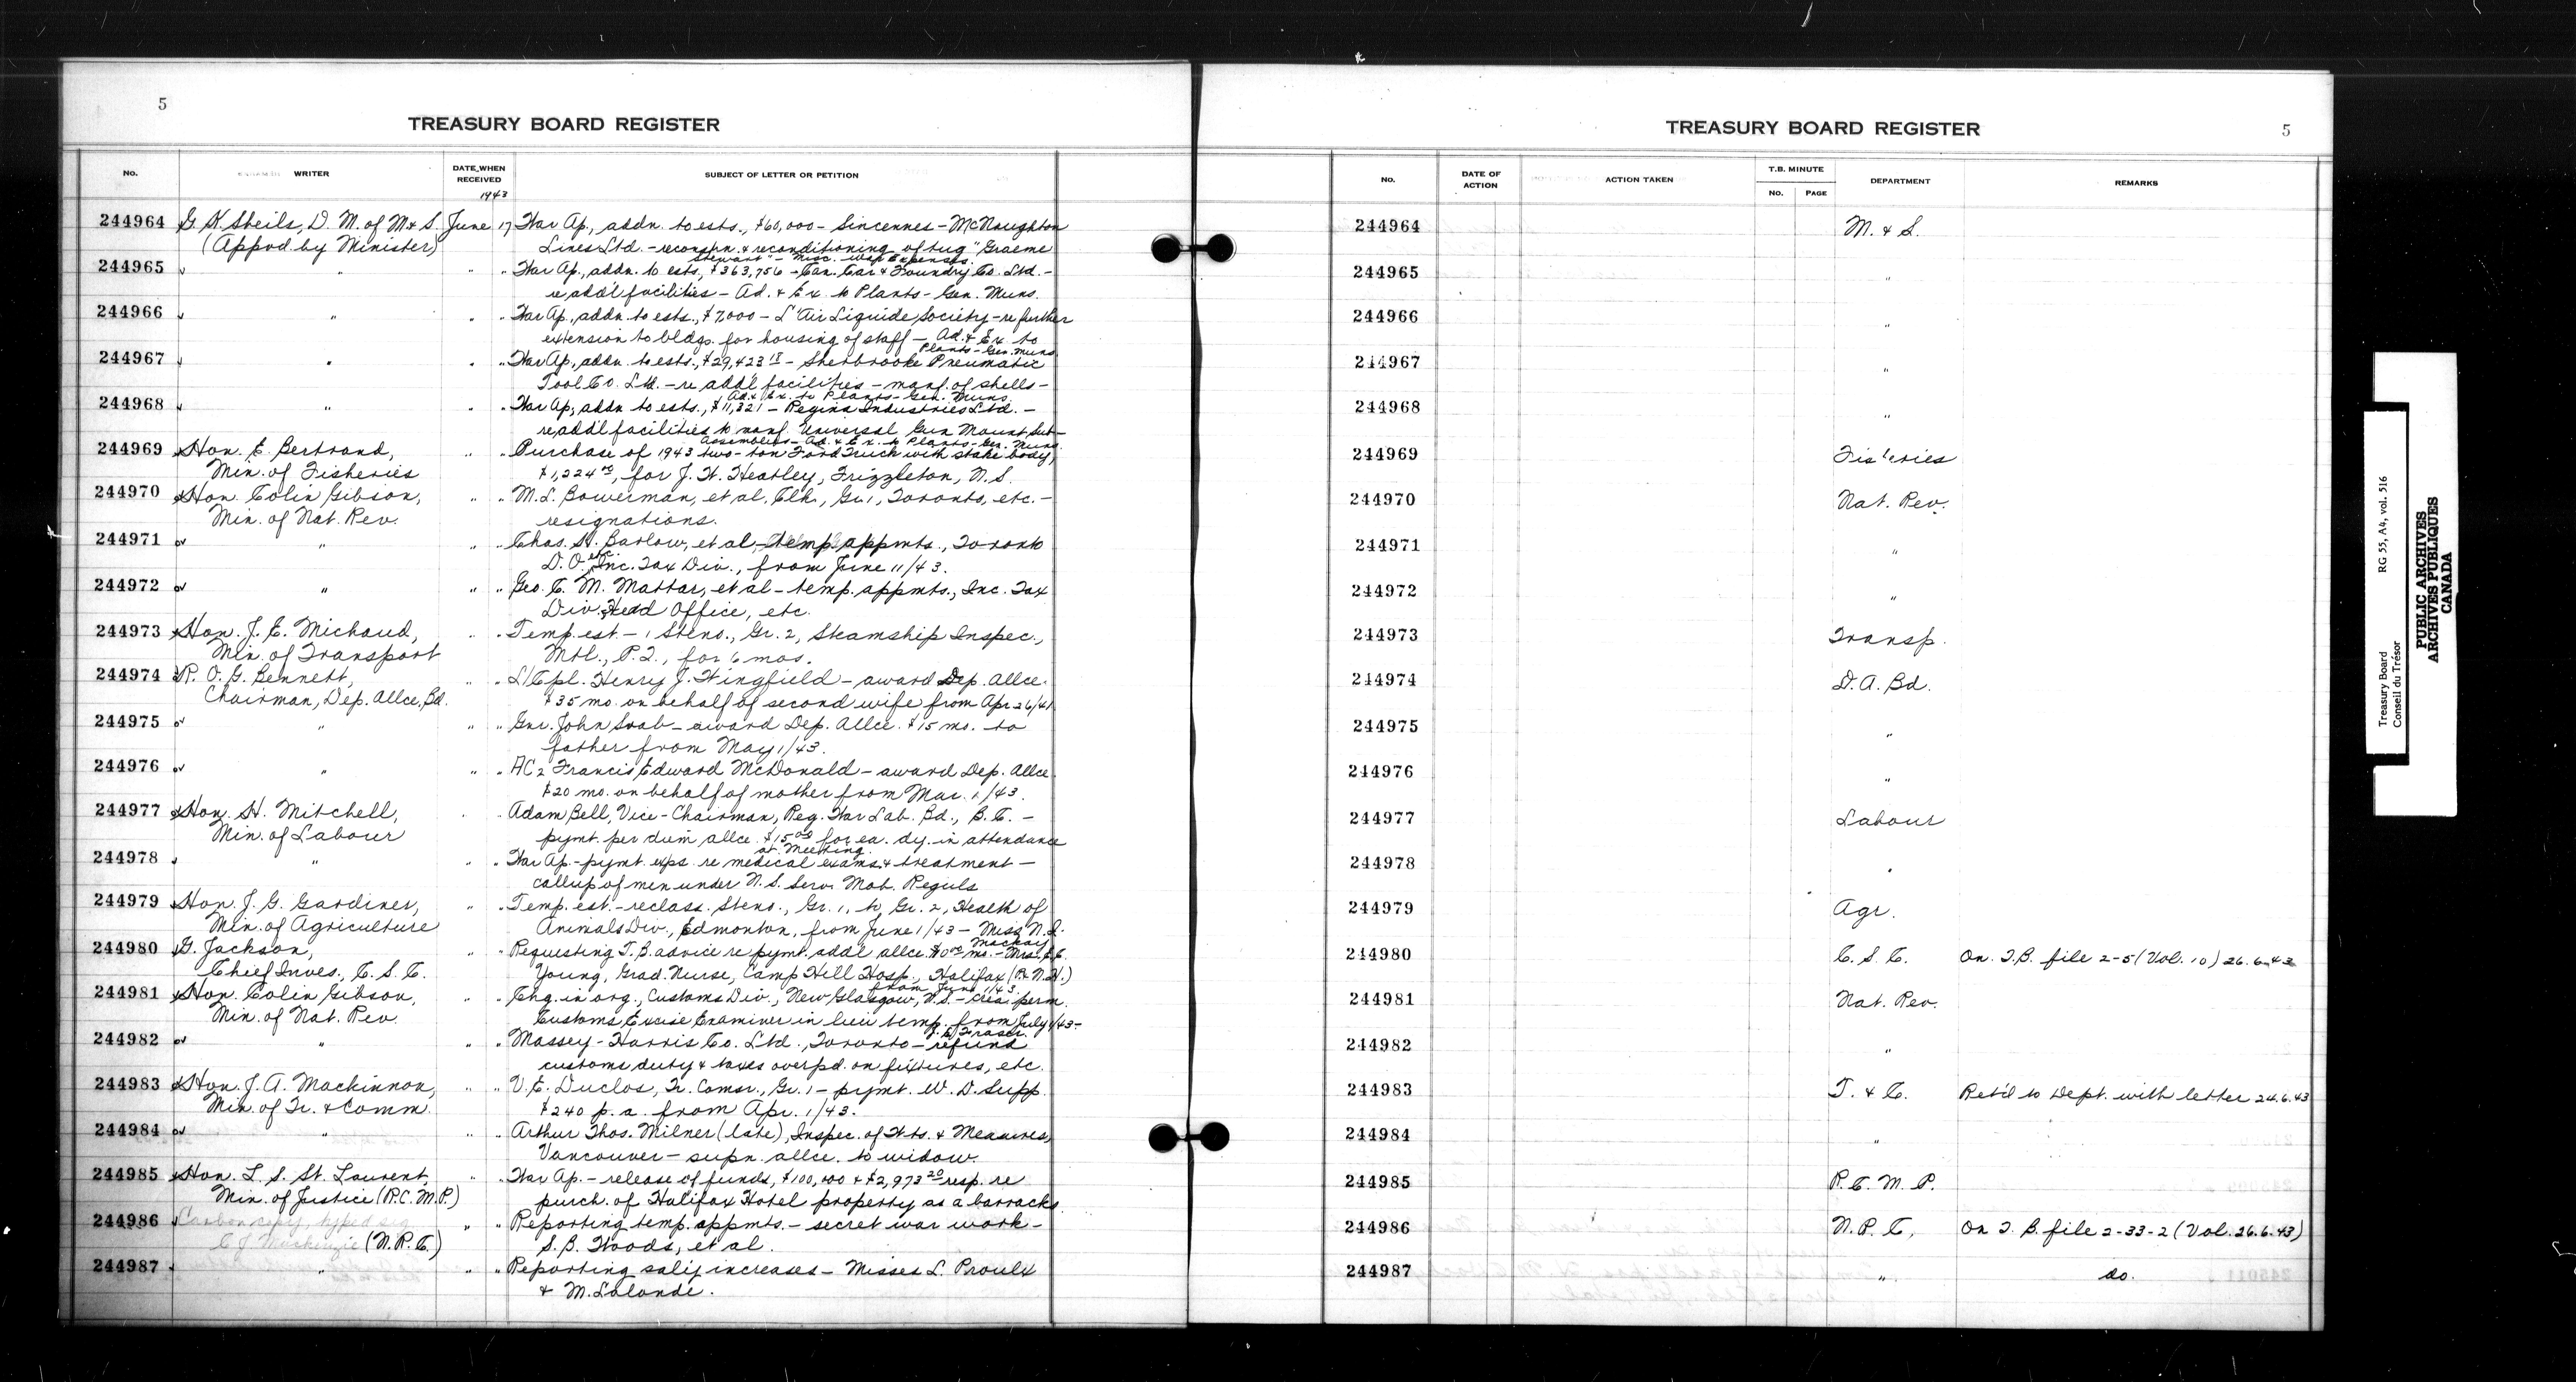 5
TREASURY BOARD REGISTER
No.
WRITER
DATE WHEN RECEIVED
1943
SUBJECT OF LETTER OR PETITION
244964 G. K. Sheils, D. M. of M & S. June 17 War Ap., addn. to ests., $60,000 - Sincennes - McNaughton
(Appvd. by Minister) Lines Ltd. - reconstn. & reconditioning of tug "Graeme
Stewart" - Misc. War Expenses.
244965 " " " War Ap., addn. to ests., $363,756 - Can. Car & Foundry Co. Ltd. -
re addl facilities - Ad. & Ex. to Plants - Gen. Muns.
244966 " " " War Ap., addn. to ests., $7,000 - L'Air Liquide Society - re further
extension to bldgs. for housing of staff - Ad. & Ex. to
Plants - Gen. Muns.
244967 " " " War Ap., addn. to ests., $29,423 18 - Sherbrooke Pneumatic
Tool Co. Ltd. - re addl facilities - manf. of shells -
Ad. & Ex. to Plants - Gen. Muns.
244968 " " " War Ap., addn. to ests., $11,321 - Regina Industries Ltd. -
re addl facilities to manf. Universal Gun Mount Sub-
Assemblies - Ad. & Ex. to Plants - Gen. Muns.
244969 Hon. E. Bertrand, " " Purchase of 1943 two-ton Ford Truck with stake body,
Min. of Fisheries $1,224, for J. H. Heatley, Frizzleton, N. S.
244970 Hon. Colin Gibson, " " M. L. Bowerman, et al, Clk., Gr. 1, Toronto, etc. -
Min. of Nat. Rev. resignations.
244971 " " " Chas. H. Barlow, et al, - temp. appmts., Toronto
D. O. etc. Inc. Tax Div., from June 11/43.
244972 " " " Geo. C. M. Mattar, et al - temp. appmts., Inc. Tax
Div., Head Office, etc.
244973 Hon. J. E. Michaud, " " Temp. est. - 1 Steno., Gr. 2, Steamship Inspec.,
Min. of Transport Mtl., P. Q., for 6 mos.
244974 R. O. G. Bennett, " " L/Cpl. Henry J. Wingfield - award Dep. Allce.
Chairman, Dep. Allce. Bd. $35 mo. on behalf of second wife from Apr 26/41
244975 " " " Gnr. John Svab - award Dep. Allce. $15 mo. to
father from May 1/43.
244976 " " " AC2 Francis Edward McDonald - award Dep. Allce
$20 mo. on behalf of mother from Mar. 1/43.
244977 Hon. H. Mitchell, " " Adam Bell, Vice-Chairman, Reg. War Lab. Bd., B. C. -
Min. of Labour pymt. per diem allce. $15 00 for ea. dy. in attendance
at Meeting.
244978 " " " War Ap. - pymt. exps. re medical exams. & treatment -
callup of men under N. S. Serv. Mob. Reguls
244979 Hon. J. G. Gardiner, " " Temp. est. - reclass. Steno., Gr. 1, to Gr. 2, Health of
Min. of Agriculture Animals Div., Edmonton, from June 1/43 - Miss N. L.
Mackay
244980 G. Jackson, " " Requesting T. B. advice re pymt. addl allce. $10 00 mo. - Mrs.
Chief Inves., C. S. C. Young, Grad. Nurse, Camp Hill Hosp., Halifax (P. & N. H.)
from June 1/43.
244981 Hon. Colin Gibson, " " Chg. in org., Customs Div., New Glasgow, N. S. - crea. perm.
Min. of Nat. Rev. Customs Excise Examiner in lieu temp. from July 1/43 -
Fraser.
244982 " " " Massey-Harris Co. Ltd., Toronto - refund
customs duty & taxes overpd. on fixtures, etc.
244983 Hon. J. A. Mackinnon, " " V. E. Duclos, Tr. Comsr., Gr. 1 - pymt. W. D. Supp.
Min. of Tr. & Comm. $240 p. a. from Apr. 1/43.
244984 " " " Arthur Thos. Milner (late), Inspec. of Wts. & Measures,
Vancouver - supn. allce. to widow.
244985 Hon. L. S. St. Laurent, " " War Ap. - release of funds, $100,000 & $2,973 20 resp. re
Min. of Justice (R.C.M.P.) purch. of Halifax Hotel property as a barracks
244986 Carbon copy, typed sig. " " Reporting temp. appmts. - secret war work -
C J Mackenzie (N. R. C.) S. B. Woods, et al.
244987 " " " Reporting sal'y increases - Misses L. Proulx
& M. Lalonde.
TREASURY BOARD REGISTER
5
No.
DATE OF ACTION
ACTION TAKEN
T.B. MINUTE
No.
PAGE
DEPARTMENT
REMARKS
244964 M. & S.
244965 "
244966 "
244967 "
244968 "
244969 Fisheries
244970 Nat. Rev.
244971 "
244972 "
244973 Transp.
244974 D. A. Bd.
244975 "
244976 "
244977 Labour
244978 "
244979 Agr.
244980 C. S. C. On T. B. file 2-5 (Vol. 10) 26.6.43
244981 Nat. Rev.
244982 "
244983 T. & C. Ret'd to Dept. with letter 24.6.43
244984 "
244985 R. C. M. P.
244986 N. R. C. On T. B. file 2-33-2 (Vol. 26.6.43)
244987 " do.
Treasury Board
Conseil du Trésor
RG 55, A4, vol. 516
PUBLIC ARCHIVES
ARCHIVES PUBLIQUES
CANADA